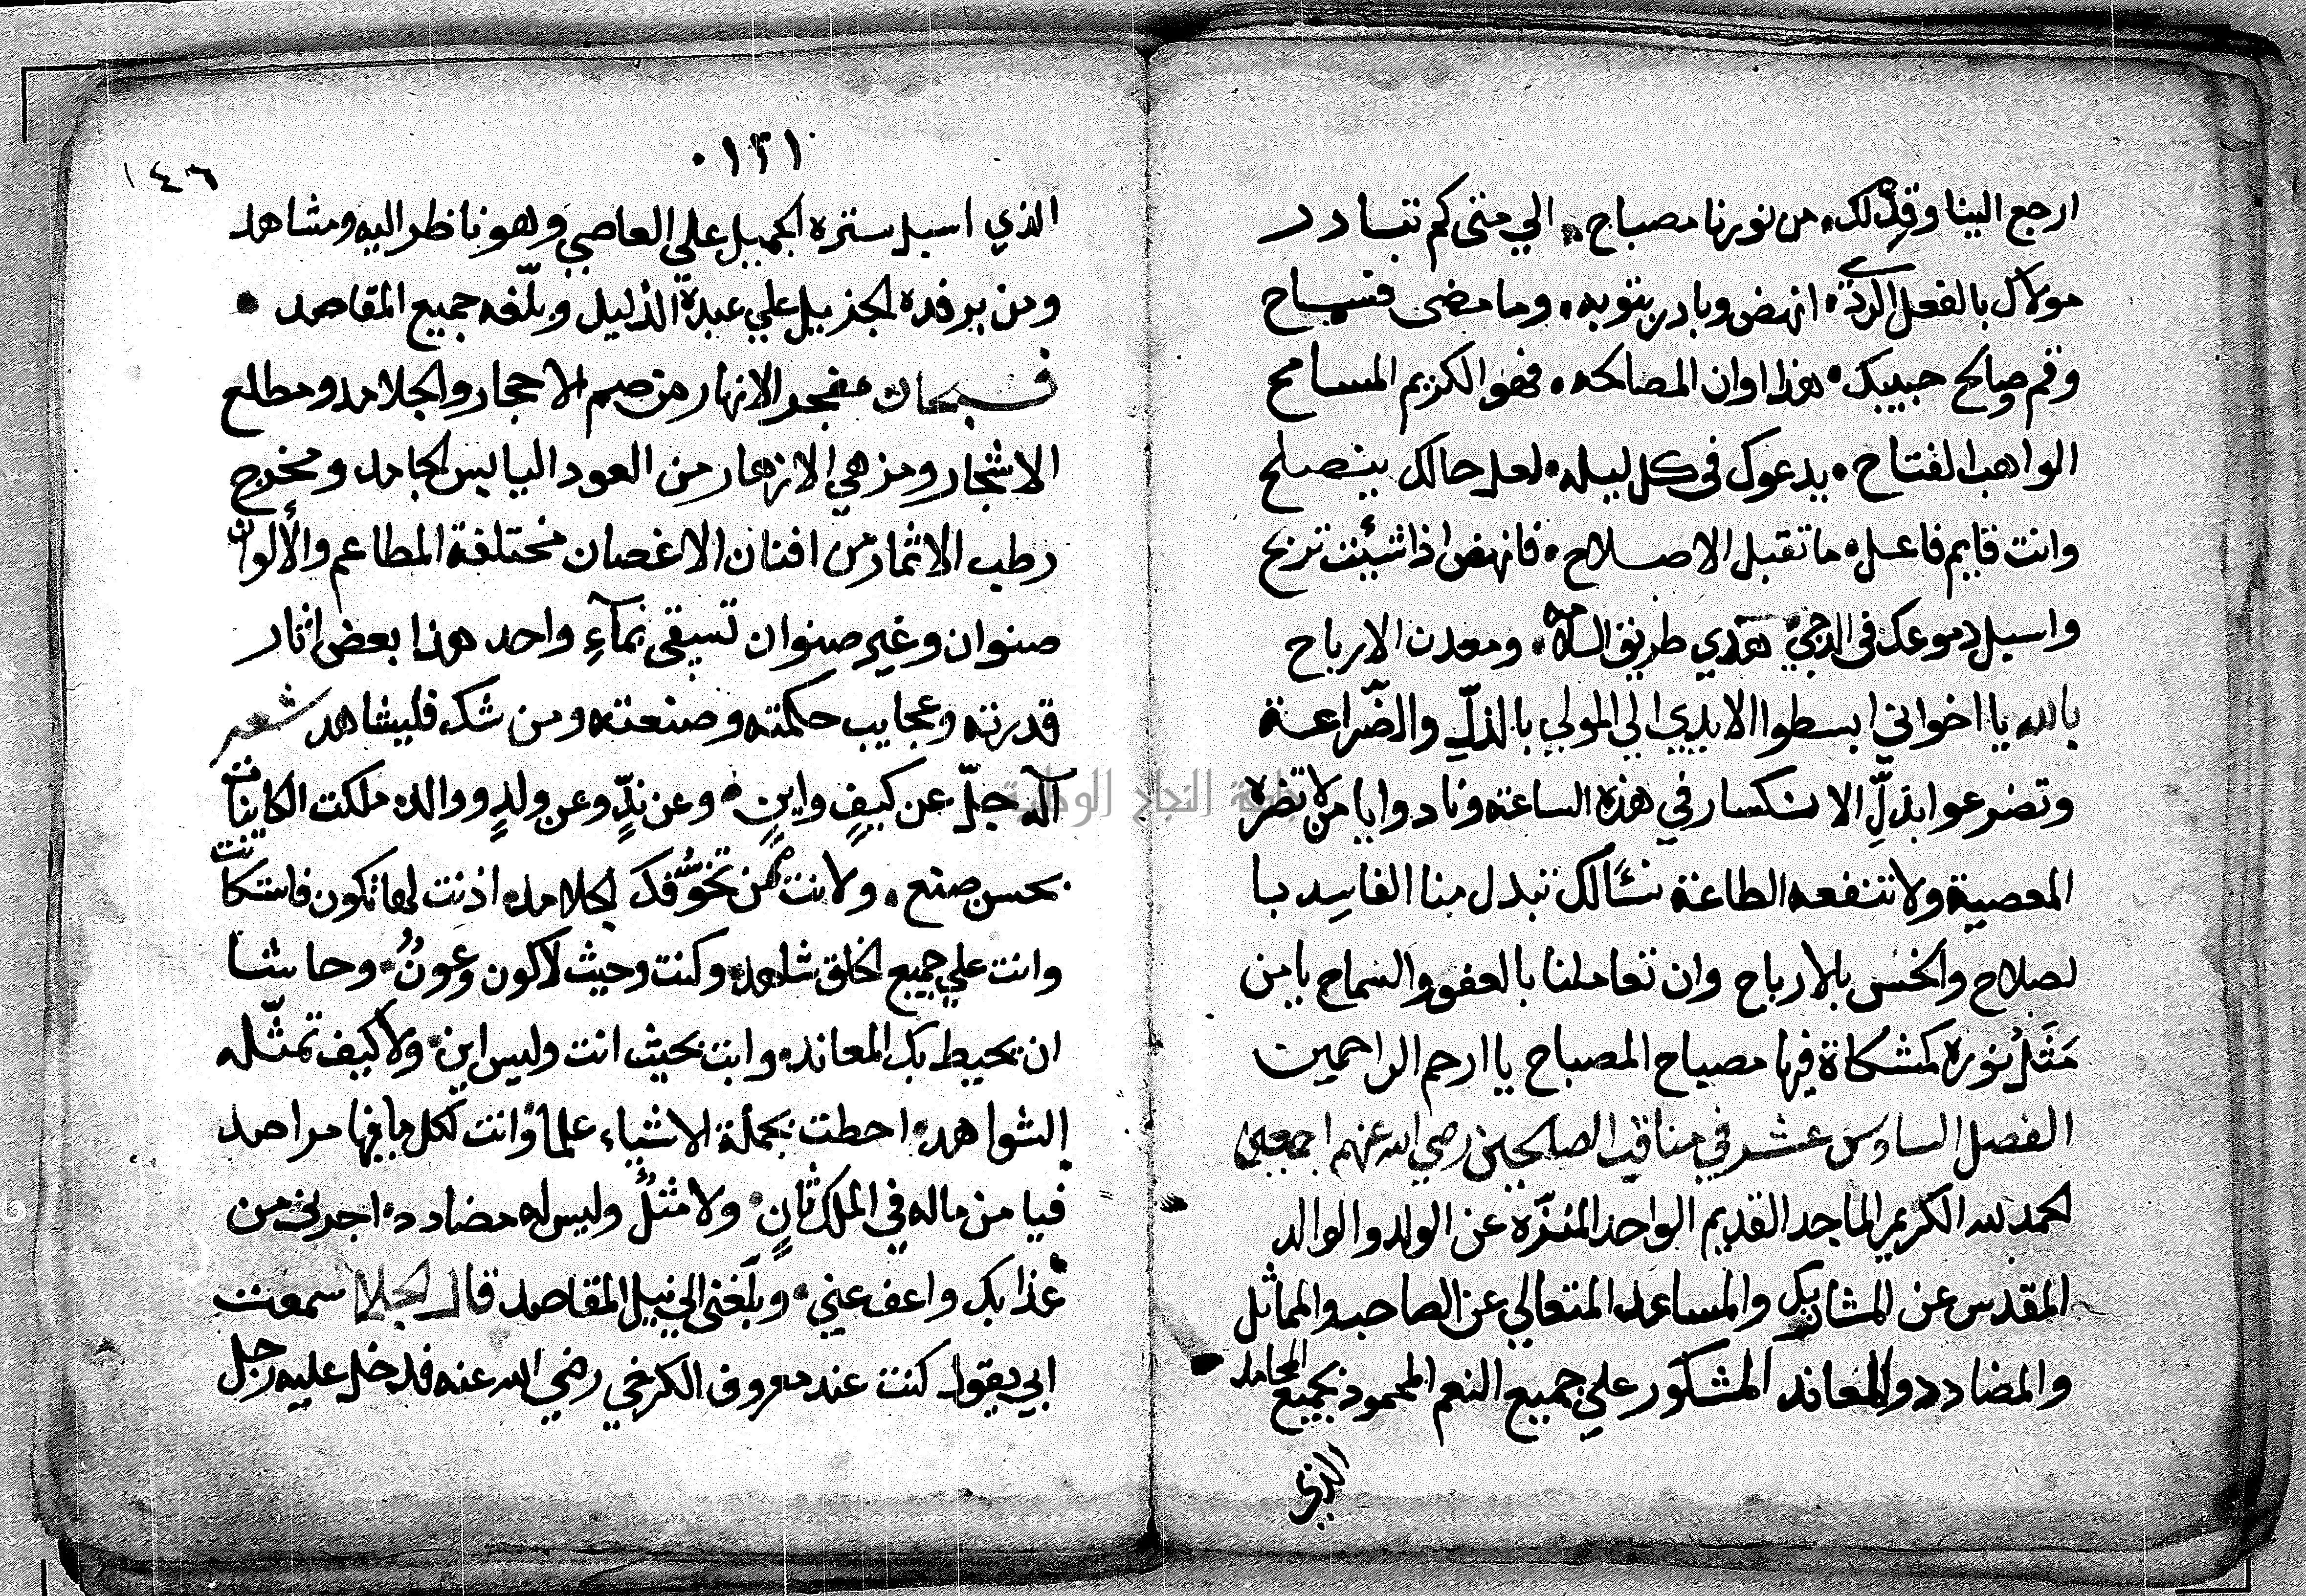 ارجع الينا وقد لك من نورنا مصباح الي متى كم تبادر
مولاك بالفعل الردي انهض وبادر بتوبه وما مضى فسماح
وقم وصالح حبيبك هذا اوان المصالحه فهو الكريم المسامح
الواهب الفتاح يدعوك في كل ليله لعل حالك ينصلح
وانت قايم فاعل ما تقبل الاصلاح فانهض اذا شئت تربح
واسبل دموعك في الدجي هذي طريق ومعدن الارباح
بالله يا اخواني ابسطوا الايدي الي المولي بالذلّ والضّراعة
وتضرعوا بذلّ الانكسار في هذه الساعة ونادوا يا من لا تضره
المعصية ولا تنفعه الطاعة نسألك تبدل منا الفاسد با
لصلاح والخسر بالارباح وان تعاملنا بالعفو والسماح يا من
مَثَلُ نوره كمشكاة فيها مصباح المصباح يا ارحم الراحمين
الفصل السادس عشر في مناقب الصالحين رضي الله عنهم اجمعين
الحمد لله الكريم الماجد القديم الواحد المنزّه عن الولد والوالد
المقدس عن المشارك والمساعد المتعالي عن الصاحب والمماثل
والمضادد والمعاند المشكور علي جميع النعم المحمود بجميع المحامد
الذي
١٢١
١٤٦
الذي اسبل ستره الجميل علي العاصي وهو ناظر اليه ومشاهد
ومن برفده الجزيل علي عبده الذليل وبلّغه جميع المقاصد
فسبحان مفجر الانهار من صم الاحجار والجلامد ومطلع
الاشجار ومزهي الازهار من العود اليابس الجامد ومخرج
رطب الاثمار من افنان الاغصان مختلفة المطاعم والألوان
صنوان وغير صنوان تسقى بمآءٍ واحد هذا بعض اثار
قدرته وعجايب حكمته وصنعته ومن شك فليشاهد شعر
آله جلّ عن كيفٍ واينٍ وعن ندٍّ وعن ولدٍ ووالد ملكت الكاينات
بحسن صنع ولانت من تخوّفك الجلامد اذنت لها تكون فاستكانت
وانت علي جميع الخلق شاهد وكنت وحيث لا كون وعونٌ وحاشا
ان يحيط بك المعاند وانت بحيث انت وليس اين ولا كيف تمثّله
الشواهد احطت بجملة الاشياء علما وانت لكل ما فيها مراصد
فيا من ماله في الملك ثانٍ ولا مثلٌ وليس له مضادد اجرني من
عذابك واعف عني وبلّغني الي نيل المقاصد قال الجلا سمعت
ابي يقول كنت عند معروف الكرخي رضي الله عنه فدخل عليه رجل